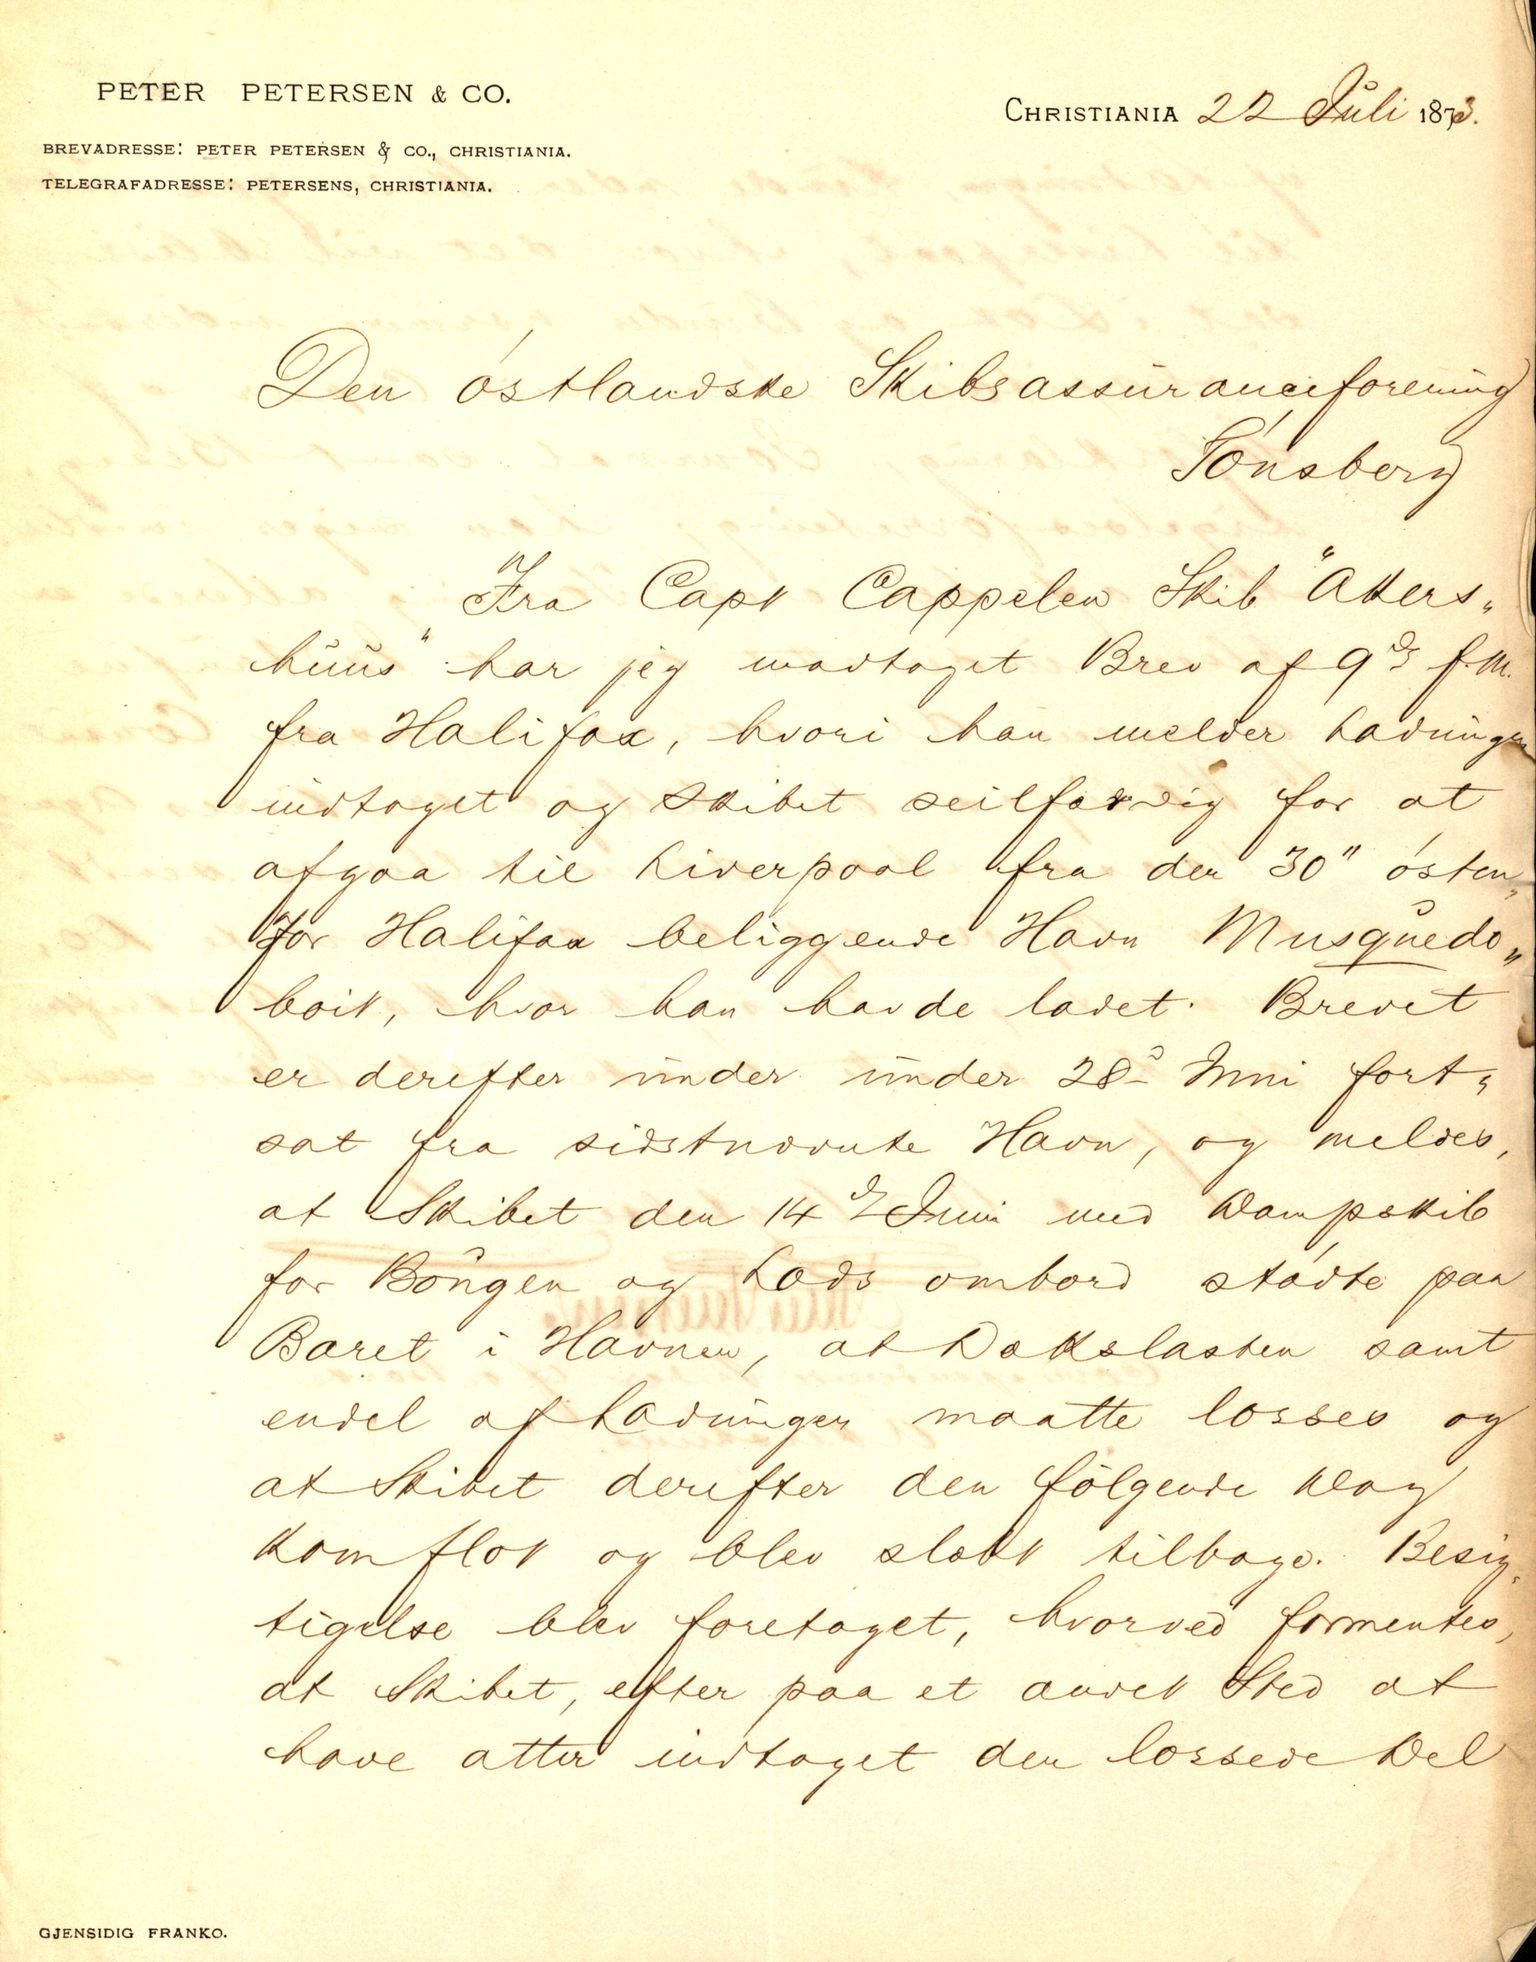 PETER PETERSEN & CO.
BREVADRESSE: PETER PETERSEN & CO., CHRISTIANIA.
TELEGRAFADRESSE: PETERSENS, CHRISTIANIA.
CHRISTIANIA 22 Juli 1873.
Den østlandske Skibsassuranceforening
Tønsberg
Fra Capt Cappelen Skib "Akers„
huus" har jeg modtaget Brev af 9ds f.M.
fra Halifax, hvori han melder Ladningen
indtaget og Skibet seilfærdig for at
afgaa til Liverpool fra den 30" østen„
for Halifax beliggende Havn Musquedo„
boit, hvor han havde ladet. Brevet
er derefter under under 28d Juni fort„
sat fra sidstnævnte Havn, og meldes,
at Skibet den 14de Juni med Dampskib
for Bougen og Lods ombord stødte paa
Baret i Havnen, at Dækslasten samt
endel af Ladningen maatte losses og
at Skibet derefter den følgende Dag
kom flot og blev slæbt tilbage. Besig„
tigelse blev foretaget, hvorved formentes,
at Skibet, efter paa et andet Sted at
have atter indtaget den lossede Del
GJENSIDIG FRANKO.